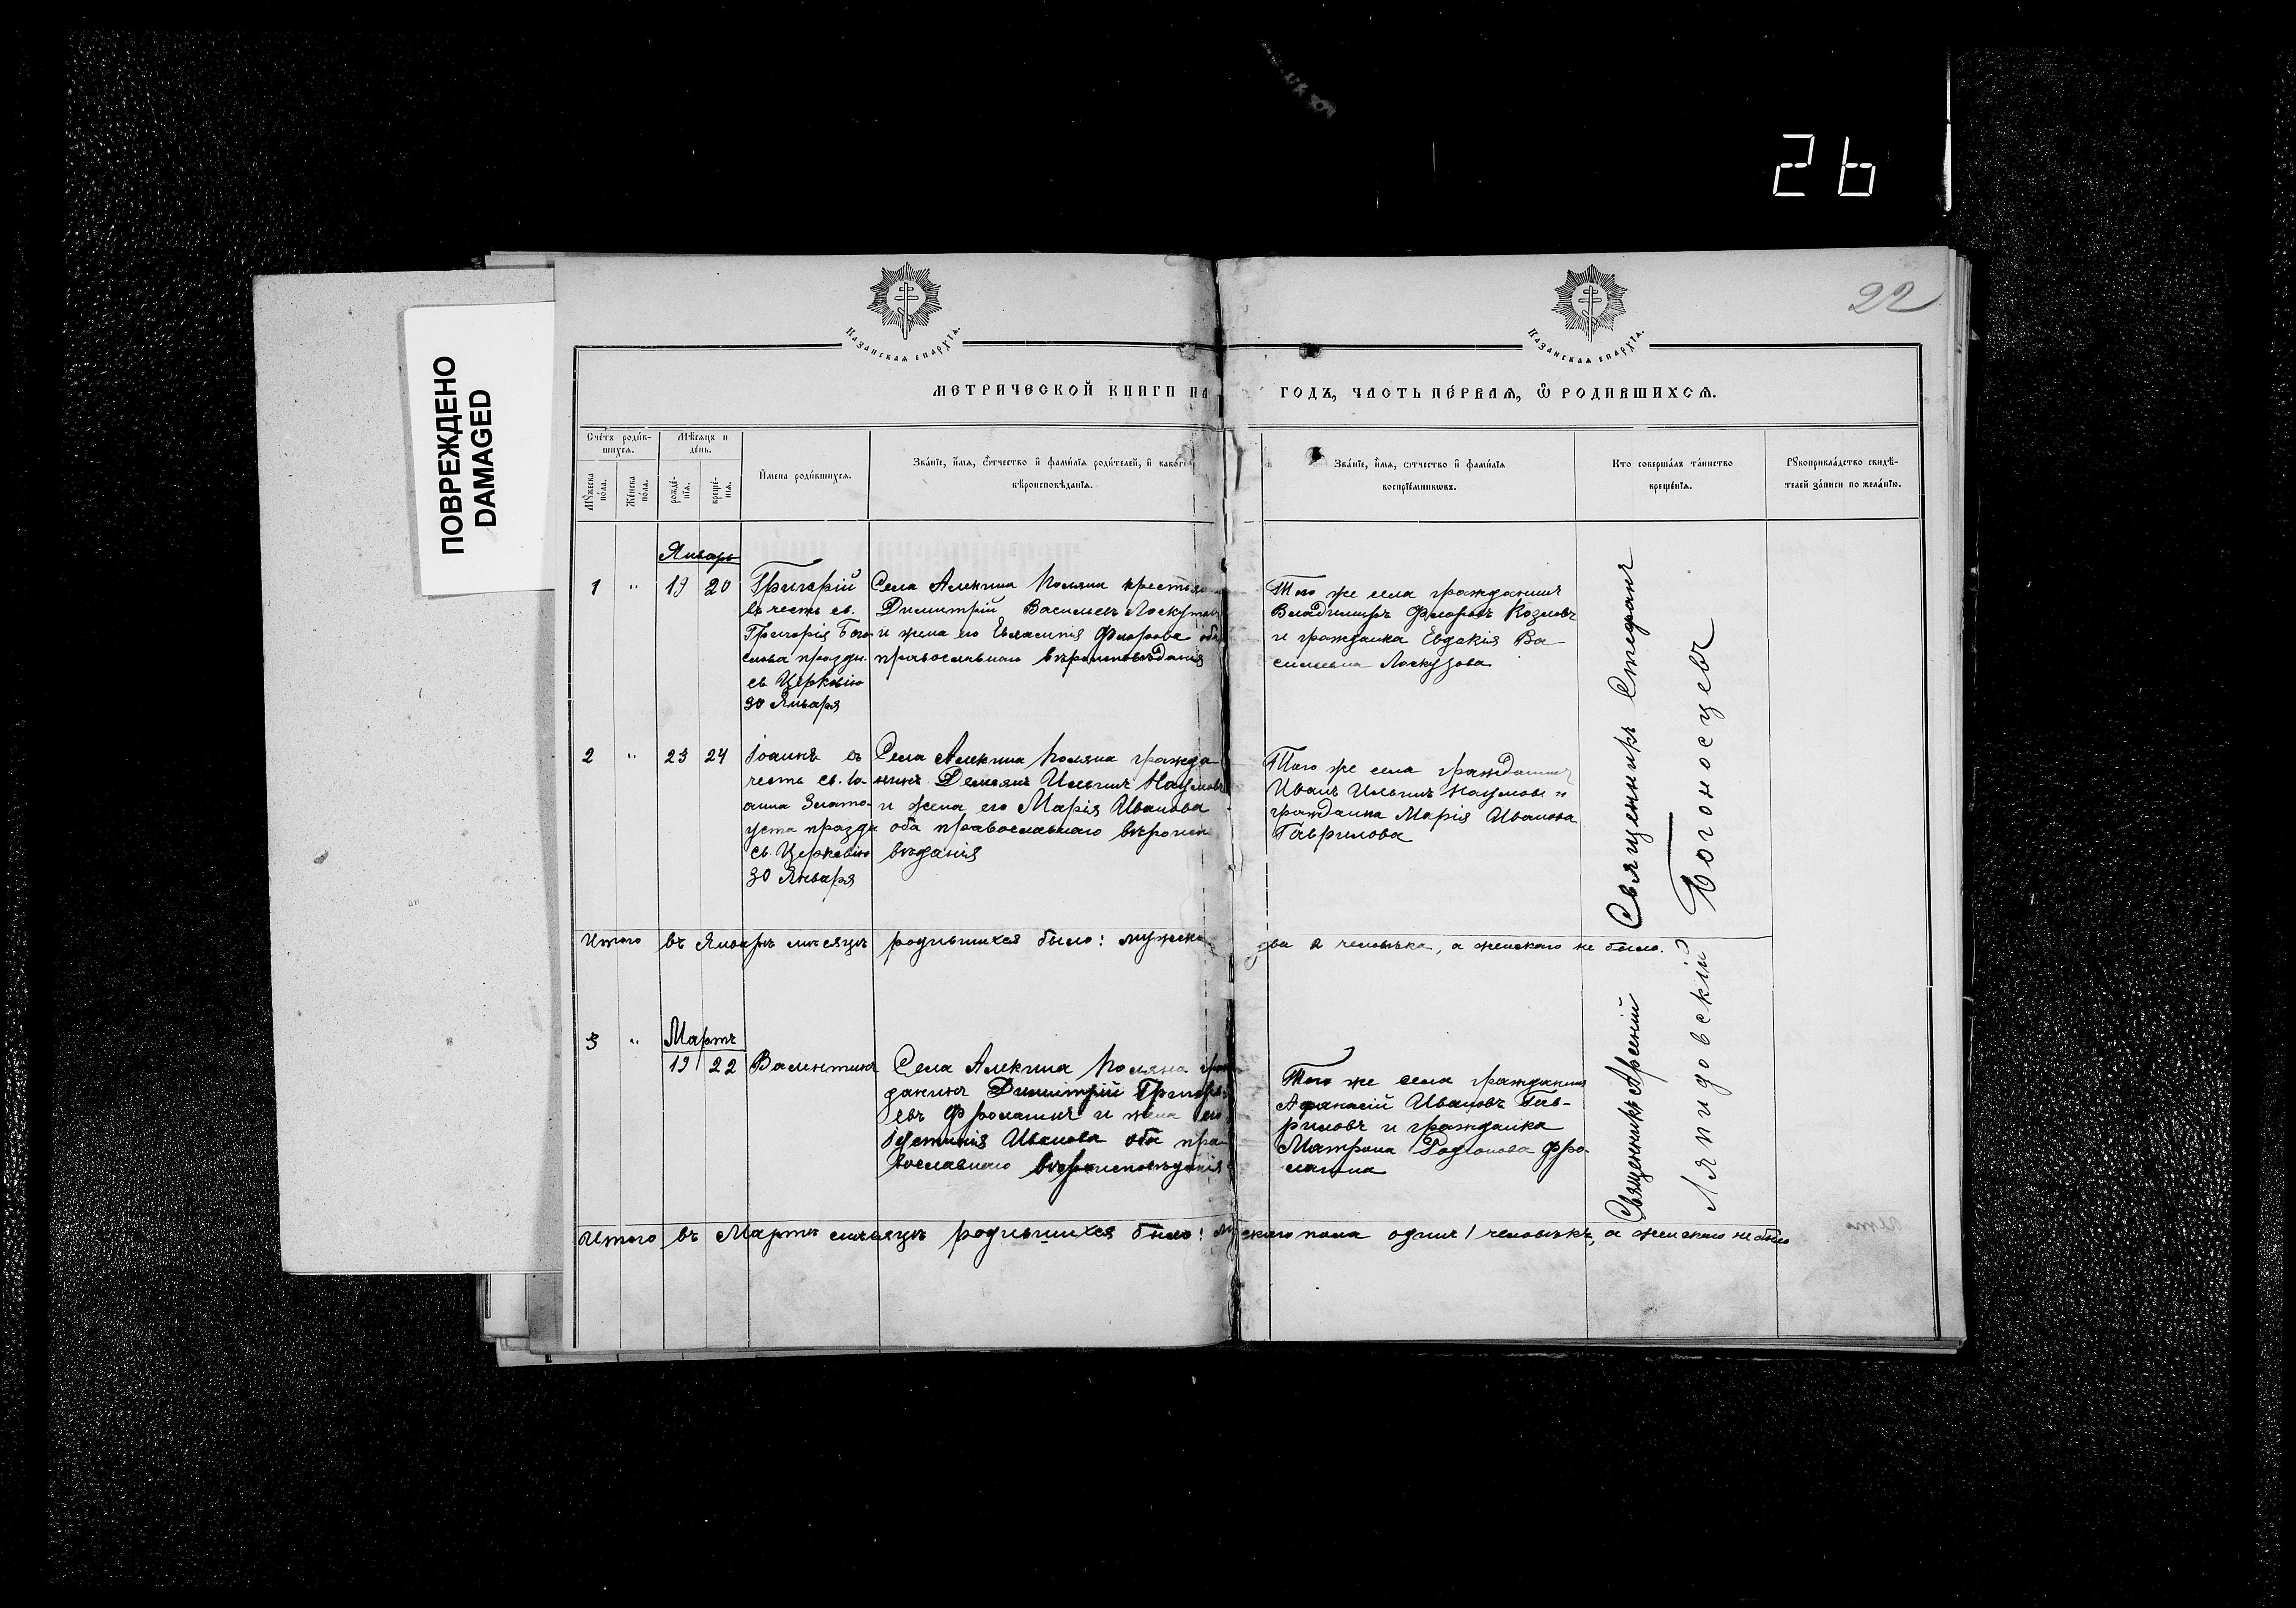 26
22
ПОВРЕЖДЕНО
DAMAGED
Казанская епархїѧ.
Казанская епархїѧ.
МЕТРИЧЕСКОЙ КНИГИ НА ГОДЪ, ЧАСТЬ ПЕ́РВАѦ, Ѿ РОДИВШИХСѦ.
Сче́тъ роди́в-
шихся.
Мѣ́сяцъ и
де́нь.
Мꙋ́жеска по́ла.
Же́нска по́ла.
рожде́-
нїѧ.
креще́-
нїѧ.
И҆мена роди́вшихся.
Зва́нїе, и҆́мя, ѻ҆́тчество и҆ фамі́лїя роди́телей, и҆ како́го
вѣроисповѣ́данїѧ.
Зва́нїе, и҆́мя, ѻ҆тчество и҆ фами́лїя
воспрїе́мникѡвъ.
Кто соверша́лъ та́инство
креще́нїѧ.
Рꙋкоприкла́дство свидѣ́-
телей за́писи по жела́нїю.
Январь
1 " 19 20
Григорій
въ честь св.
Григорія Бого-
слова праздн.
св. Церковію
30 Января
Села Алекина Поляна крестья
Димитрій Васильевъ Лоскутовъ
и жена его Флорова оба
православнаго вѣроисповѣданія
Того же села гражданинъ
Владимиръ Флоровъ Козловъ
и гражданка Евдокія Ва-
сильева Лоскутова
Священникъ Стефанъ
Погоносцевъ
2 " 23 24
Іоаннъ въ
честь св. Іо-
анна Злато-
уста праздн
св. Церковію
30 Января
Села Алекина Поляна гражда-
нинъ Демьянъ Ильинъ Наумовъ
и жена его Марія Иванова
оба православнаго вѣроиспо
вѣданія
Того же села гражданинъ
Иванъ Ильинъ Наумовъ и
гражданка Марія Иванова
Гаврилова
Итого въ Январѣ мѣсяцѣ родившихся было: мужска два 2 человѣка, а женскаго не было.
3 " Мартъ
19 22 Валентинъ
Села Алекина Поляна граж
данинъ Димитрій Григорь-
евъ Фролашинъ и жена его
Іустинія Иванова оба пра-
вославнаго вѣроисповѣданія
Того же села гражданинъ
Афанасій Ивановъ Гав-
риловъ и гражданка
Матрона Родіонова Фро-
лашина
Священникъ Арсеній
Ляпидовскій
Итого въ Мартѣ мѣсяцѣ родившихся было: мужскаго пола одинъ 1 человѣкъ, а женскаго не было